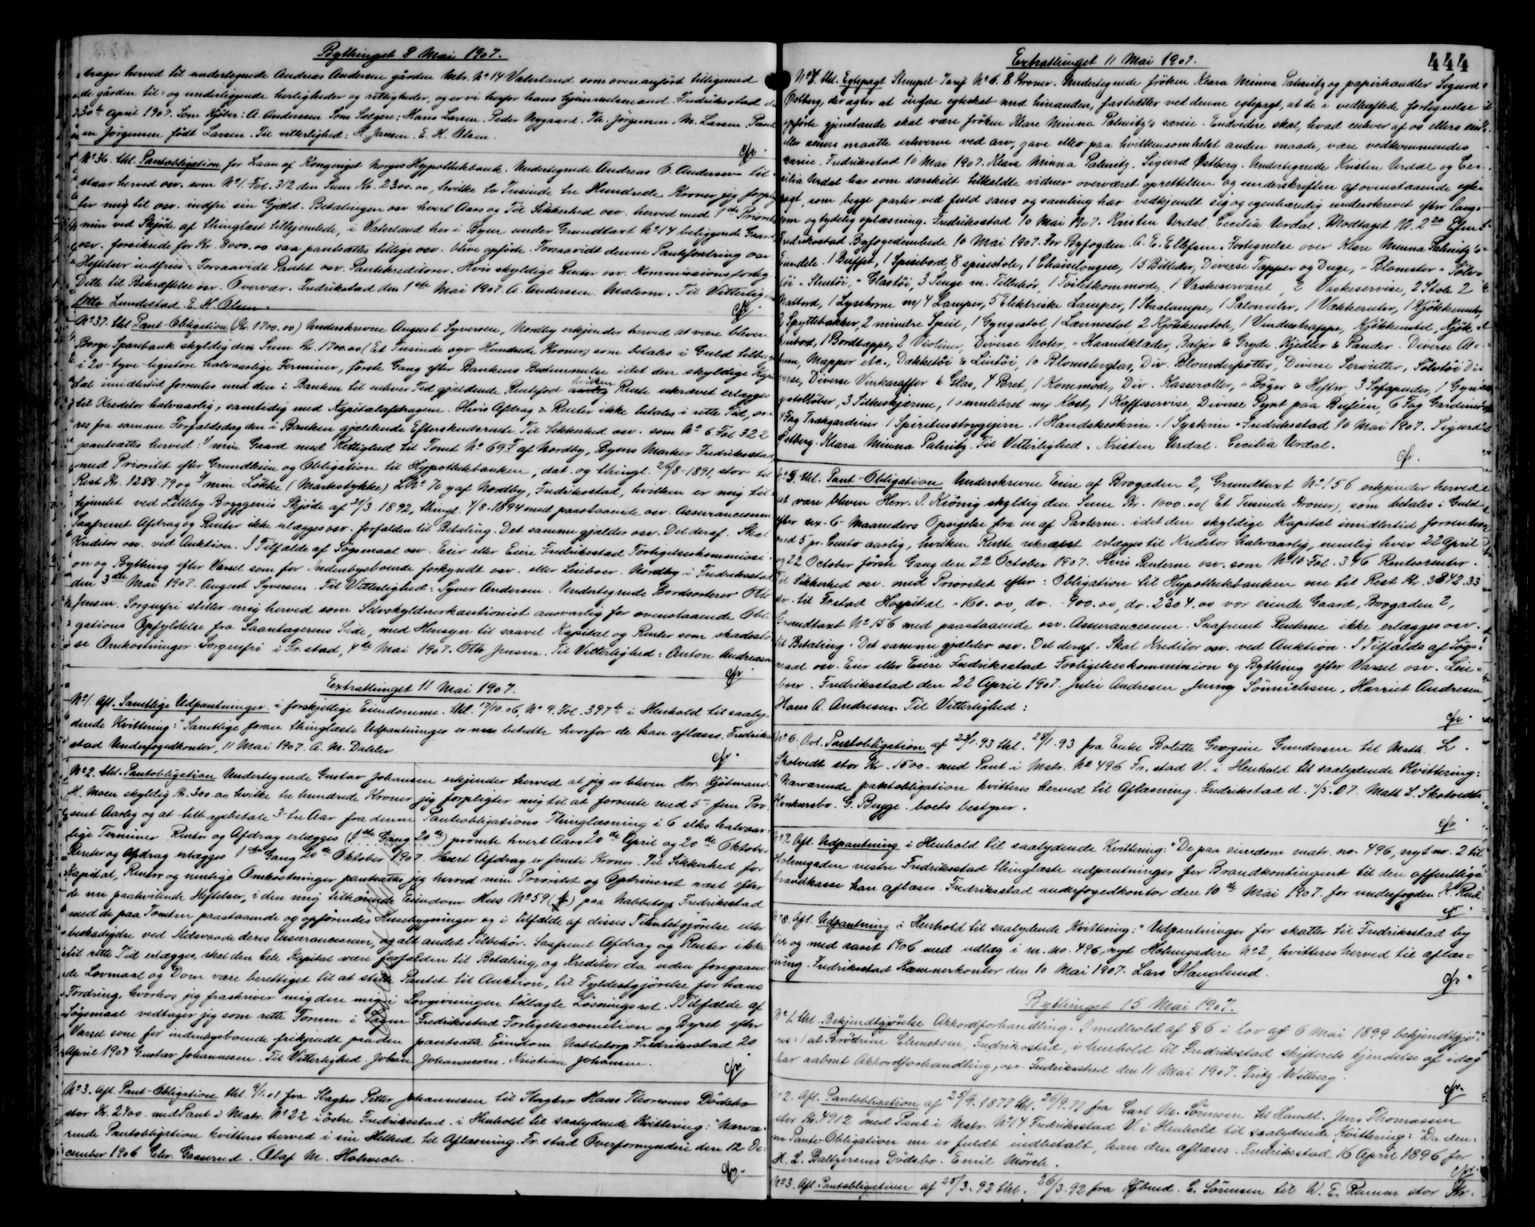 Bythinget 8 Mai 1907.
drager herved til undertegnede Andreas Andersen gården Mtr. No 14 Vaterland som ovenanført tilligemed
de gården til- og underliggende herligheder og rettigheder, og er vi herfor hans hjemmelsmænd. Fredrikstad
30te April 1907. Som Kjøber: A. Andersen. Som Sælgere: Hans Larsen. Peder Nygaard. Th. Jørgensen. M. Larsen.
Jørgensen født Larsen. Til vitterlighed: H. Jansen. E. H. Olsen.
No 36. thl. Pantobligation for Laan af Kongeriget Norges Hypothekbank. Undertegnede Andreas O. Andersen til-
staar herved osv. som No 1 Fol. 312 den Sum Kr. 2300.00, hvilke to Tusinde tre Hundrede Kroner jeg forpl
ter mig til osv. indfri sin Gjæld. Betalingen osv. hvert Aars og Til Sikkerhed osv. herved med 1ste Priorit
min ved Skjøde af thinglæst tilhjemlede, i Vaterland her i Byen under Grundtaxt No 14 beliggende Gaard
osv. forsikrede for Kr. 8000.00 saa pantsættes tillige osv. blive opførte. Forsaavidt denne Pantsætning osv.
Heftelser indfries. Forsaavidt Pantet osv. Pantekreditorer. Hvis skyldige Renter osv. Kommissions forlig
Dette til Bekræftelse osv. Overvær. Fredrikstad den 1ste Mai 1907. A. Andersen. Malerm. Til Vitterlighed
Otto Lundestad. E. H. Olsen.
No 37. thl. Pant-Obligation (Kr. 1700.00) Underskrevne August Syversen, Nordby erkjender herved at være bleven
Borge Sparebank skyldig den Sum Kr. 1700.00 (Et Tusinde syv Hundrede Kroner) som betales i Guld tilbage
i 20-tyve ligestore halvaarlige Terminer, første Gang efter Bankens Bestemmelse idet den skyldige Kapi-
tal imidlertid forrentes med den i Banken til enhver Tid gjældende Rentefod hvilken Rente ukrævet erlægges
til Kreditor halvaarlig, samtidig med Kapitalafdragene. Hvis Afdrag & Renter ikke betales i rette Tid, sva-
res fra samme Forfaldsdag den i Banken gjældende Efterskudsrente. Til Sikkerhed osv. som No 6 Fol 322
pantsættes herved: 1/ min Gaard med Rettighed til Tomt No 69 af Nordby, Byens Marker Fredrikstad
med Prioritet efter Grundleien og Obligation til Hypothekbanken, dat. og thingl. 26/8 1891, stor til
Rest Kr. 1288.79 og 2/ min Løkke (Markestykke) L.No 70 y af Nordby, Fredrikstad, hvilken er mig til-
hjemlet ved Lilleby Byggeris Skjøde af 21/3 1892, thingl. 1/8-1894 med paastaaende osv. Assurancesum
Saafremt Afdrag og Renter ikke erlægges osv. forfalden til Betaling. Det samme gjælder osv. Det deraf. Skal
Kreditor osv. ved Auktion. I Tilfælde af Søgsmaal osv. Eier eller Eiere Fredriksstad Forligelseskommissi-
on og Bything efter Varsel som for Indenbysboende forkyndt osv. eller Leieboer. Nordby i Fredrikstad
den 3die Mai 1907. August Syversen. Til Vitterlighed: Syver Andersen. Undertegnede Bordsorterer Otto
Jensen, Sorgenfri stiller mig herved som Selvskyldnerkautionist ansvarlig for ovenstaaende Obli-
gations Opfyldelse fra Laantagerens Side, med Hensyn til saavel Kapital og Renter som skadesløs-
se Omkostninger. Sorgenfri i Fr.stad, 4de Mai 1907. Otto Jensen. Til Vitterlighed: Anton Andreasen
Extrathinget 11 Mai 1907.
No 1. Afl. Samtlige Udpantninger i forskjellige Eiendomme. thl. 17/10.06, No 9. Fol. 397 i Henhold til saaly-
dende Kvittering: "Samtlige foran thinglæste Udpantninger er nu betalte hvorfor de kan aflæses. Fredrik-
stad Underfogedkontor, 11 Mai 1907. A. M. Dahler.
No 2. thl. Pantobligation Undertegnede Gustav Johansen erkjender herved at jeg er bleven Hr. Kjøbmand
H. Moen skyldig Kr. 300.00 hvilke tre hundrede Kroner jeg forpligter mig til at forrente med 5- fem Pro-
sent Aarlig og at tilbagebetale 3- tre Aar fra denne Pantobligations Thinglæsning i 6 seks halvaar-
lige Terminer. Renter og Afdrag erlægges (1ste Gang 20de) promte hvert Aars 20de April og 20de Oktobr.
Renter og Afdrag erlægges 1ste Gang 20de Oktober 1907. Hvert Afdrag er femti Kroner. Til Sikkerhed for
Kapital, Renter og mulige Omkostninger pantsætter jeg herved min Prioritet og Optrinsret næst efter
de nu paahvilende Heftelser, i den mig tilhørende Eiendom Hus No 59 paa Nabbetorp Fredriksstad
med de paa Tomten paastaaende og opførendes Husebygninger og i tilfælde af disses Tilintetgjørelse eller
beskadigelse ved Ildsvaade deres Assurancesum, og alt andet Tilbehør. Saafremt Afdrag og Renter ikke
til rette Tid erlægges, skal den hele Kapital være forfalden til Betaling, og Kreditor da uden foregaaen-
de Lovmaal og Dom være berettiget til at stille Pantet til Auktion, til Fyldestgjørelse for hans
Fordring, hvorhos jeg fraskriver mig den mig i Lovgivningen tillagte Løsningsret. I Tilfælde af
Søgsmaal vedtager jeg som rette Forum i Sagen Fredriksstad Forligelsescomition og Byret efter
Varsel som for indenbysboende frikyndt paa den pantsatte Eiendom. Nabbetorp Fredriksstad 20
April 1907 Gustav Johannesen. Til Vitterlighed Johan Johannesen. Kristian Johansen.
No 3. Afl. Pant-Obligation thl. 2/1.01 fra Slagter Petter Johannesen til Slagter Hans Thomsens Dødsbo
stor Kr. 2700. med Pant i Matr. No 22 i Østre Fredriksstad. i Henhold til saalydende Kvittering: "Nærvæ-
rende Pantobligation kvitteres herved i sin Helhed til Aflæsning. Fr.stad Overformynderi den 12 De-
cember 1906 Chr. Gaserud. Olaf M. Holwech.
Extrathinget 11 Mai 1907.
444
No 4. thl. Egtepagt Stempel-Tarif No 6. 8 Kroner. Undertegnede frøken Klara Minna Palnitz og papirhandler Sigurd
Østberg, der agter at indgaa egteskab med hinanden, fastsætter ved denne egtepagt, at de i vedhæftede fortegnelse
opførte gjenstande skal være frøken Klara Minna Palnitz's særeie. Endvidere skal, hvad enhver af os ellers
eller senere maatte erhverve ved arv, gave eller paa hvilkensomhelst anden maade, være vedkommendes
særeie. Fredrikstad 10 Mai 1907. Klara Minna Palnitz. Sigurd Østberg. Undertegnede Kristen Urdal og Ce-
cilia Urdal har som særskilt tilkaldte vidner overværet oprettelsen og underskriften af ovenstaaende egte-
pagt, som begge parter ved fuld sans og samling har vedkjendt sig og egenhændig underskrevet efter lang-
som og tydelig oplæsning. Fredrikstad 10 Mai 1907. Kristen Urdal. Cecilia Urdal. Modtaget Kl. 2 20 Efm.
Fredrikstad Byfogedembede 10 Mai 1907. For Byfogden A. E. Ellefsen. Fortegnelse over Klara Minna Palnitz's
Eiendele. 1 Buffet, 1 Spisebord, 8 spisestole, 1 Chaiselongue, 15 Billeder, Diverse Tæpper og Duge, - Blomster- Sølv-
tøi- Stentøi, - Glastøi, 3 Senge m. Tilbehør, 1 Toiletkommode, 1 Vaskeservant, 2 Vaskeservise, 2 Stole 2
Natbord, 1 Lysekrone m/ 4 Lamper, 5 Elektriske Lamper, 1 Staalampe, 1 Salonuhr, 1 Vækkeruhr, 1 Kjøkkenuhr,
2 Spyttebakker, 2 mindre Speil, 1 Gyngestol, 1 Lænestol 2 Kjøkkenstole, 1 Vinduskappe, Kjøkkentøi, Kjøk-
kenbord, 1 Bordtæppe, 2 Violiner, Diverse Noter, - Haandklæder, Baljer & Gryde Kjedler & Pander. Diverse Al-
bum, Mapper etc., Dækketøi & Lintøi, 10 Blomsterglas, Div. Blomsterpotter, Diverse Servietter, Sølvtøi Di-
verse, Diverse Vinkaraffer & Glas, 4 Bret, 1 Kommode, Div. Kasseroller, - Bøger & Hefter 3 Sofapuder, 1 Gynge-
stolløber, 3 Silkeskjærme, 1 omulebret m/ Kost, 1 Kaffeservise Diverse Pynt paa Bufféen, 6 Fag Gardiner
1 Fag Trækgardiner 1 Spiritusstrygejern. 1 Handskeskrin. 1 Syskrin. Fredrikstad 10 Mai 1907. Sigurd
Østberg. Klara Minna Palnitz. Til Vitterlighed. Kristen Urdal. Cecilia Urdal.
No 5. thl. Pant-Obligation Underskrevne Eiere af Brogaden 2, Grundtaxt No 156 erkjender herved
at være bleven Herr. I. Kiönig skyldig den Sum Kr. 1000.00 (Et Tusinde Kroner), som betales i Guld
efter sex- 6 Maaneders Opsigelse fra en af Parterne. idet den skyldige Kapital imidlertid forrentes
med 5 pr. Cento aarlig, hvilken Rente ukrævet erlægges til Kreditor halvaarlig, nemlig hver 22 April
og 22 October første Gang den 22 October 1907. Hvis Renterne osv. som No 10 Fol. 396 Rentesrenter
Til Sikkerhed osv. med Prioritet efter: Obligation til Hypothekbanken nu til Rest Kr. 3842.33
do. til Fr.stad Hospital - 160.00, do. - 400.00, do. 2304.00 vor eiende Gaard, Brogaden 2,
Grundtaxt No 156 med paastaaende osv. Assurancesum. Saafremt Renterne ikke erlægges osv.
til Betaling. Det samme gjælder osv. Det deraf. Skal Kreditor osv. ved Auktion. I Tilfælde af Søgs-
maal osv. Eier eller Eiere Fredriksstad Forligelseskommission og Bything efter Varsel osv. Leie-
boer. Fredriksstad den 22 April 1907. Julie Andresen Jenny Sönnichsen, Harriet Andresen
Hans A. Andresen. Til Vitterlighed:
No 6. Ovl. Pantobligation af 24/1.93 thl. 25/1.93 fra Enke Bolette Georgine Gundersen til Math. L.
Skotvedt stor Kr. 1500. med Pant i Matr. No 496 Fr.stad V. i Henhold til saalydende Kvittering:
"Nærværende pantobligation kvitteres herved til Aflæsning. Fredrikstad d. 7/5.07. Math L. Skotvedts
Konkursbo. G. Bugge. boets bestyrer.
No 7. Afl. Udpantning i Henhold til saalydende Kvittering: "De paa eiendom matr. no. 496, nyt nr. 2 til
Holmegaden vestre Fredriksstad thinglæste udpantninger for Brandkontingent til den offentlige
brandkasse kan aflæses. Fredriksstad underfogedkontor den 10de Mai 1907. for underfogden K. Rød.
No 8. Afl. Udpantning i Henhold til saalydende Kvittering: "Udpantninger for skatter til Fredriksstad by
til og med aaret 1906 med udlæg i m.no. 496, nyt Holmegaden No 2, kvitteres herved til aflæs-
ning. Fredriksstad Kæmnerkontor den 10 Mai 1907. Lars Hauglund.
Bythinget 15 Mai 1907.
No 1. thl. Bekjendtgjørelse Akkordforhandling. I medhold af § 6 i lov af 6 Mai 1899 bekjendtgjø-
res: at Brødrene Clemetsen, Fredrikstad, i henhold til Fredriksstad skifterets kjendelse af idag
har aabnet Akkordforhandling, osv. Fredriksstad den 11 Mai 1907. Fritz Wilberg.
No 2. Afl. Pantobligation af 25/9.1877 thl. 26/9.77 fra Carl M. Sørensen til Handl. Jens Thomassen
stor Kr. 4912 med Pant i Matr. No 14 Fredriksstad V. i Henhold til saalydende Kvittering: "Da den-
ne Pante-Obligation nu er fuldt indbetalt, kan den aflæses. Fredriksstad 16 April 1896 for
H. L. Baltzersens Dødsbo. Emil Mørch.
No 3. Afl. Pantobligation af 25/3.92 thl. 26/3.92 fra Kjbmd. E. Sørensen til W. E. stor Kr.